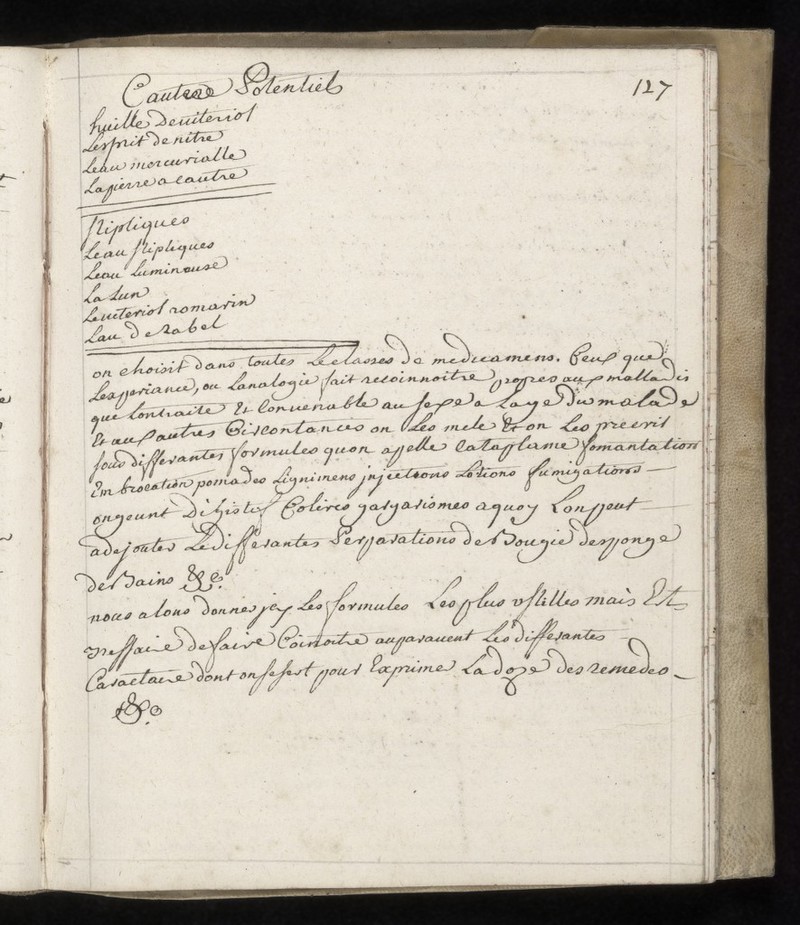 Cautere Potentiels
127
huille De viteriol
Lesprit de nitre
Leau mercurialle
La pierre a cautre
stiptiques
Leau stiptiques
Leau Lumineuse
La Lun
Le viteriol romarin
Lau de rabel
on choisit dans toutes Le classes de medicamens. Ceux que
Lesperiance, ou Lanalogie fait recoinnoitre propres aux malladis
que Lontraite Et Convenable au sexe a Laye du malade
Et aux autres Circontances on Les mele Et on Les precrit
sous differantes formules quon apelle Cataplame fomantation
Embrocation pomades Lignimens jnjections Lotions fumigations
ongeunt Digistif Colires gargarismes a quoy Lon peut
adejouter Le differantes Perparations de Bougie desponge
de Bains &c.
nous alons donner jcy Les formules Les plus vstilles mais Est
nessaire de faire Coinoitre auparavent Les differantes
Caractaire dont on se sert pour Exprime La doze des remedes
&c.